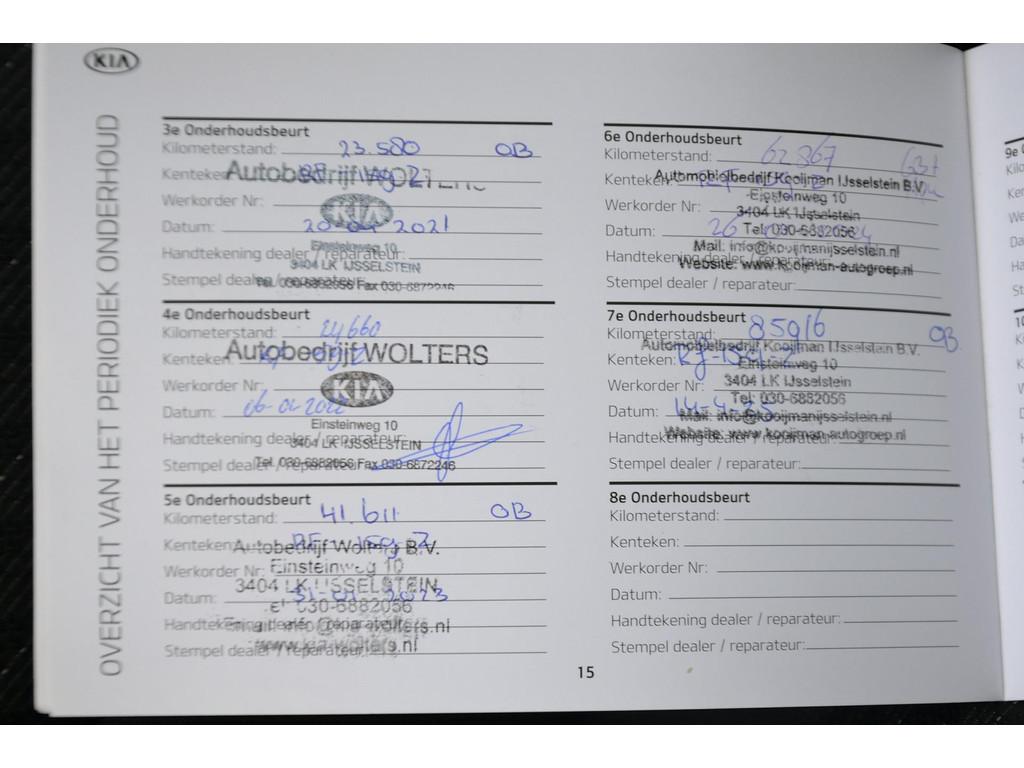 KIA
OVERZICHT VAN HET PERIODIEK ONDERHOUD
3e Onderhoudsbeurt
Kilometerstand: 23.580 OB
Kenteken:
Autobedrijf WOLTERS
Werkorder Nr:
KIA
Datum: 2021
Einsteinweg 10
Handtekening dealer / reparateur:
3404 LK IJSSELSTEIN
Stempel dealer / reparateur:
Tel. 030-6882056 Fax 030-6872246
4e Onderhoudsbeurt
Kilometerstand: 24660
Kenteken:
Autobedrijf WOLTERS
Werkorder Nr:
KIA
Datum: 06-01-2022
Einsteinweg 10
Handtekening dealer / reparateur:
3404 LK IJSSELSTEIN
Stempel dealer / reparateur:
Tel. 030-6882056 Fax 030-6872246
5e Onderhoudsbeurt
Kilometerstand: 41.611 OB
Kenteken:
Autobedrijf Wolters B.V.
Werkorder Nr:
Einsteinweg 10
3404 LK IJSSELSTEIN
Datum: 2023
030-6882056
Handtekening dealer / reparateur:
Stempel dealer / reparateur:
www.kia-wolters.nl
6e Onderhoudsbeurt
Kilometerstand: 62867
Kenteken:
Automobielbedrijf Kooijman IJsselstein B.V.
Einsteinweg 10
Werkorder Nr:
3404 LK IJsselstein
Datum: 26
Tel: 030-6882056
Mail: info@kooijmanijsselstein.nl
Handtekening dealer / reparateur:
Website: www.kooijman-autogroep.nl
Stempel dealer / reparateur:
7e Onderhoudsbeurt
Kilometerstand: 85916 OB
Automobielbedrijf Kooijman IJsselstein B.V.
Kenteken:
Einsteinweg 10
Werkorder Nr:
3404 LK IJsselstein
Tel: 030-6882056
Datum: 14-4-25
Mail: info@kooijmanijsselstein.nl
Handtekening dealer / reparateur:
Website: www.kooijman-autogroep.nl
Stempel dealer / reparateur:
8e Onderhoudsbeurt
Kilometerstand:
Kenteken:
Werkorder Nr:
Datum:
Handtekening dealer / reparateur:
Stempel dealer / reparateur:
15